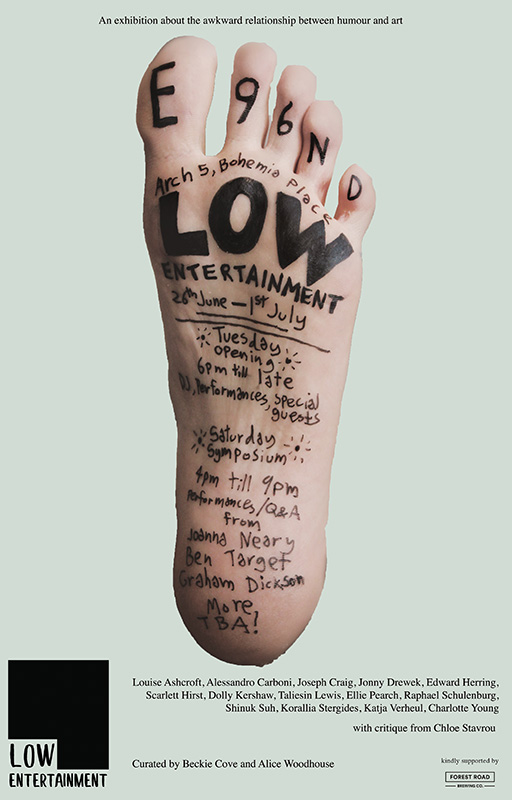 An exhibition about the awkward relationship between humour and art
E 9 6 N D
Arch 5, Bohemia Place
LOW
ENTERTAINMENT
26th June – 1st July
Tuesday
opening
6pm till late
DJ, Performances, special
guests
Saturday
Symposium
4pm till 9pm
Performances/Q&A
from
Joanna Neary
Ben Target
Graham Dickson
More
TBA!
Louise Ashcroft, Alessandro Carboni, Joseph Craig, Jonny Drewek, Edward Herring,
Scarlett Hirst, Dolly Kershaw, Taliesin Lewis, Ellie Pearch, Raphael Schulenburg,
Shinuk Suh, Korallia Stergides, Katja Verheul, Charlotte Young
with critique from Chloe Stavrou
LOW
ENTERTAINMENT
Curated by Beckie Cove and Alice Woodhouse
kindly supported by
FOREST ROAD
BREWING CO.